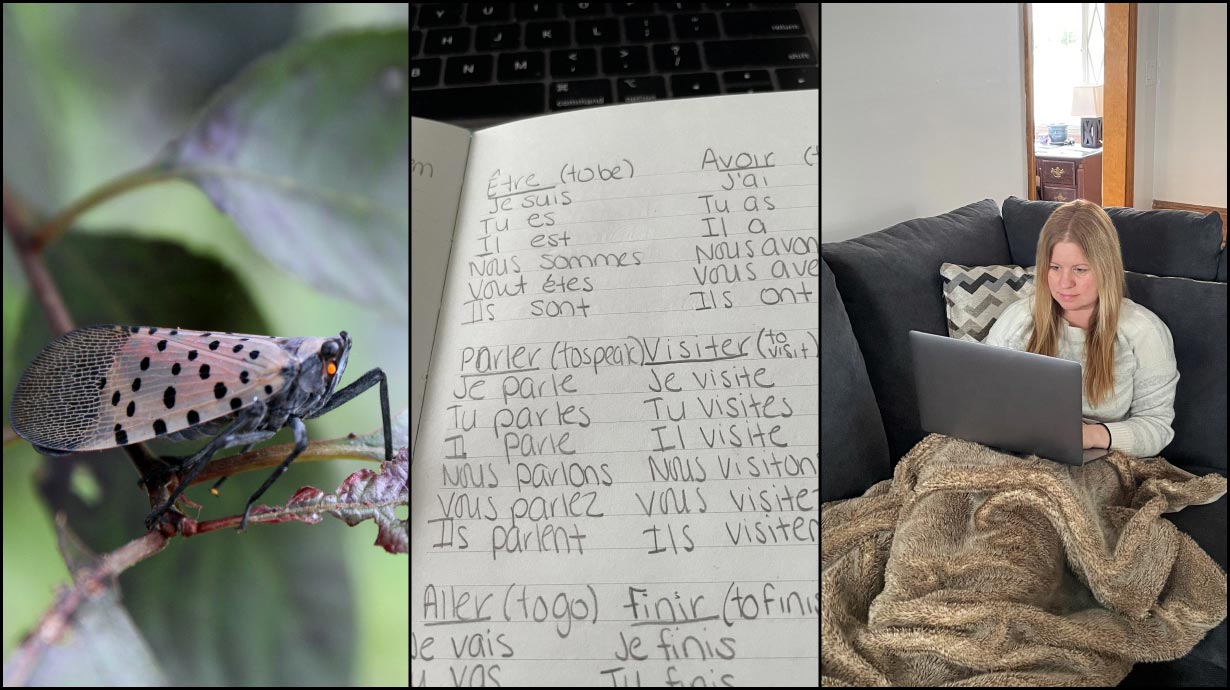 Y U I O P
H J K L : ; return
B N M < , > . ? / shift
⌘ command ⌥ option
m
Être (to be)
Je suis
Tu es
Il est
Nous sommes
Vout êtes
Ils sont
Avoir (t
J'ai
Tu as
Il a
Nous avon
Vous ave
Ils ont
Parler (to speak)
Je parle
Tu parles
Il parle
Nous parlons
Vous parlez
Ils parlent
Visiter (to visit)
Je visite
Tu visites
Il visite
Nous visiton
Vous visite
Ils visiter
Aller (to go)
Je vais
u vas
Finir (to finis
Je finis
Tu finis